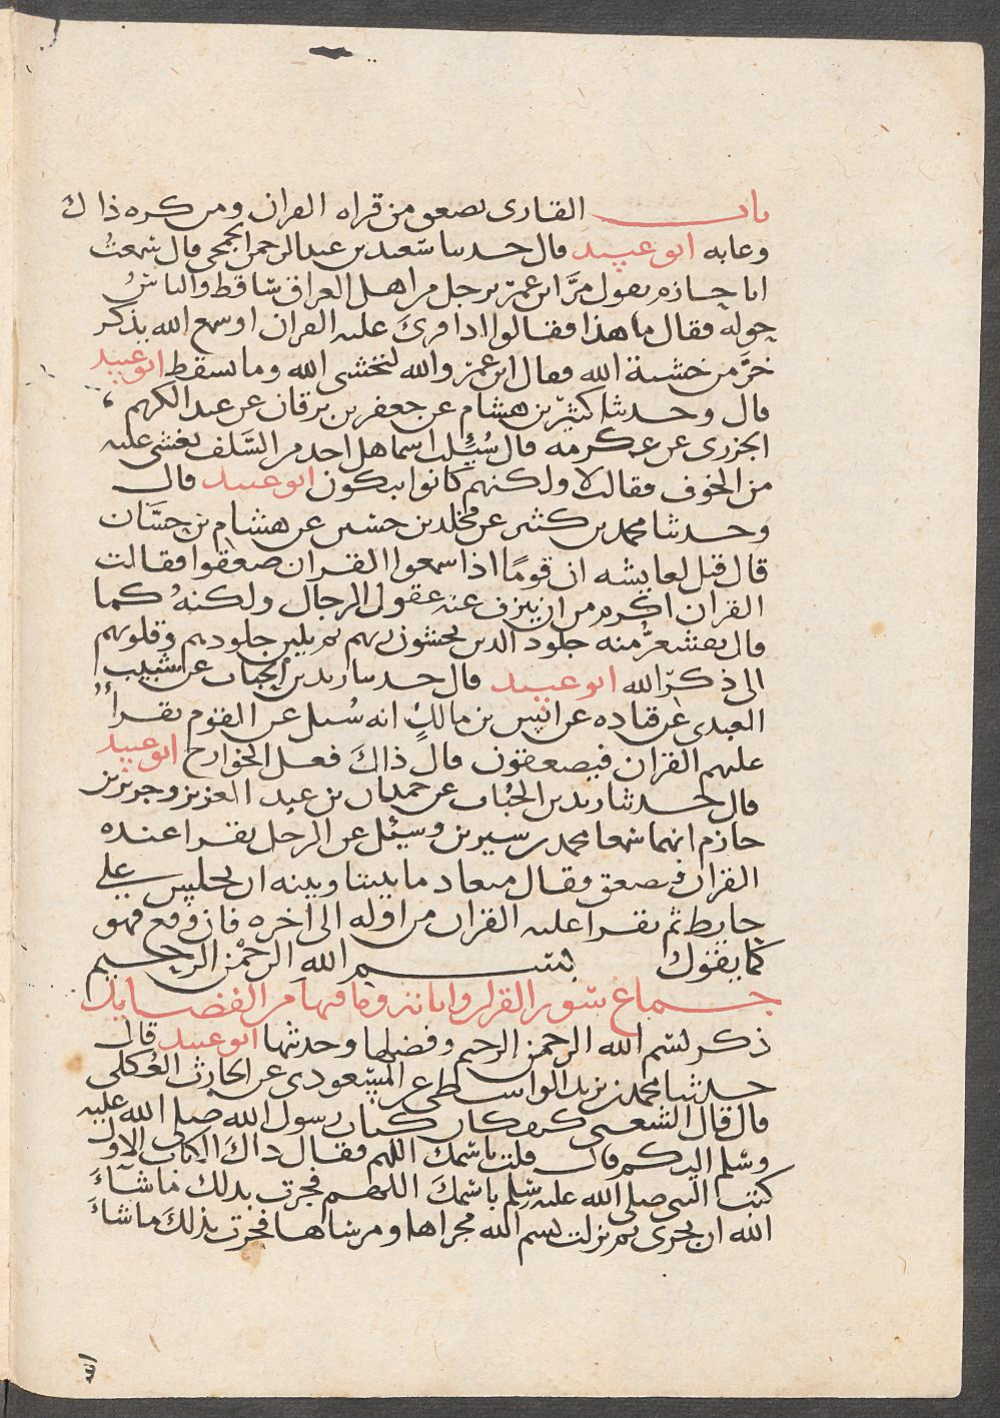 باب القارى يصعق من قراه القران ومن كره ذاك
وعابه ابو عبيد قال حدثنا سعيد بن عبد الرحمن الجمحى قال سمعتُ
ابا حازم يقول مرَّ ابن عمر برجل من اهل العراق ساقط والناسُ
حوله فقال ما هذا فقالوا اذا قرئ عليه القران او سمع الله يذكر
خرَّ من خشية الله فقال ابن عمر والله لنخشى الله وما نسقط ابو عبيد
قال وحدثنا كثير بن هشام عن جعفر بن برقان عن عبد الكريم
الجزرى عن عكرمه قال سُئِلت اسما هل احد من السَّلف يغشى عليه
من الخوف فقالت لا ولكنهم كانوا يبكون ابو عبيد قال
وحدثنا محمد بن كثير عن مخلد بن حسين عن هشام بن حسَّان
قال قيل لعايشه ان قومًا اذا سمعوا القران صعقوا فقالت
القران اكرم من ان ينزف عنه عقول الرجال ولكنهُ كما
قال تقشعرُّ منه جلود الذين يخشون ربهم ثم تلين جلودهم وقلوبهم
الى ذكر الله ابو عبيد قال حدثنا زيد بن الحباب عن شبيب
العبدى عن قتاده عن انس بن مالكٍ انه سُئل عن القوم يقرأ
عليهم القران فيصعقون قال ذاكَ فعل الخوارج ابو عبيد
قال حدثنا زيد بن الحُباب عن حمدان بن عبد العزيز وجرير بن
حازم انهما سمعا محمد بن سيرين وسئل عن الرجل يقرا عنده
القران فيصعق فقال ميعاد ما بيننا وبينه ان يجلس على
حايط ثم يقرا عليه القران من اوله الى اخره فان وقع فهو
كما يقول بسم الله الرحمن الرحيم
جماع سور القران واياته وما فيها من الفضايل
ذكر بسم الله الرحمن الرحيم وفضلها وحدثنا ابو عبيد قال
حدثنا محمد بن يزيد الواسطى عن المسعودى عن الحارث العُكلى
قال قال الشعبى كيف كان كتاب رسول الله صلى الله عليه
وسلم اليكم قال قلت باسمك اللهم فقال ذاكَ الكتاب الاول
كتب النبى صلى الله عليه وسلم باسمكَ اللهم فجرت بذلك ما شآءَ
الله ان يجرى ثم نزلت بسم الله مجراها ومرساها فجرت بذلكَ ما شاءَ
الله